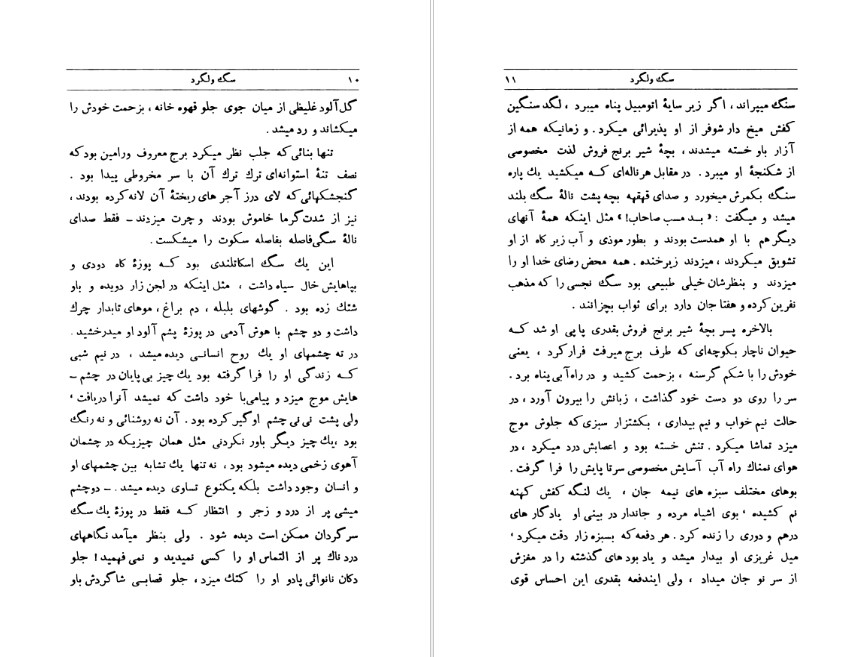 ۱۰ سگ ولگرد
گل‌آلود غلیظی از میان جوی جلو قهوه خانه ، بزحمت خودش را
میکشاند و رد میشد .
تنها بنائی که جلب نظر میکرد برج معروف ورامین بود که
نصف تنهٔ استوانه‌ای ترك ترك آن با سر مخروطی پیدا بود .
گنجشکهائی که لای درز آجر های ریختهٔ آن لانه کرده بودند ،
نیز از شدت گرما خاموش بودند و چرت میزدند ـ فقط صدای
نالهٔ سگی فاصله بفاصله سکوت را میشکست .
این یك سگ اسکاتلندی بود که پوزهٔ کاه دودی و
بپاهایش خال سیاه داشت ، مثل اینکه در لجن زار دویده و باو
شتك زده بود . گوشهای بلبله ، دم براغ ، موهای تابدار چرك
داشت و دو چشم با هوش آدمی در پوزهٔ پشم آلود او میدرخشید .
در ته چشمهای او یك روح انسانی دیده میشد ، در نیم شبی
که زندگی او را فرا گرفته بود یك چیز بی پایان در چشم ـ
هایش موج میزد و پیامی با خود داشت که نمیشد آنرا دریافت ،
ولی پشت نی نی چشم او گیر کرده بود . آن نه روشنائی و نه رنگ
بود ، یك چیز دیگر باور نکردنی مثل همان چیزیکه در چشمان
آهوی زخمی دیده میشود بود ، نه تنها یك تشابه بین چشمهای او
و انسان وجود داشت بلکه یکنوع تساوی دیده میشد . ـ دو چشم
میشی پر از درد و زجر و انتظار که فقط در پوزهٔ یك سگ
سر گردان ممکن است دیده شود . ولی بنظر میآمد نگاههای
درد ناك پر از التماس او را کسی نمیدید و نمی فهمید ! جلو
دکان نانوائی پادو او را کتك میزد ، جلو قصابی شاگردش باو
سگ ولگرد ۱۱
سنگ میپراند ، اگر زیر سایهٔ اتومبیل پناه میبرد ، لگد سنگین
کفش میخ دار شوفر از او پذیرائی میکرد . و زمانیکه همه از
آزار باو خسته میشدند ، بچهٔ شیر برنج فروش لذت مخصوصی
از شکنجهٔ او میبرد . در مقابل هر ناله‌ای که میکشید یك پاره
سنگ بکمرش میخورد و صدای قهقههٔ بچه پشت نالهٔ سگ بلند
میشد و میگفت : « بد مسب صاحاب ! » مثل اینکه همهٔ آنهای
دیگر هم با او همدست بودند و بطور موذی و آب زیر کاه از او
تشویق میکردند ، میزدند زیر خنده . همه محض رضای خدا او را
میزدند و بنظرشان خیلی طبیعی بود سگ نجسی را که مذهب
نفرین کرده و هفتا جان دارد برای ثواب بچزانند .
بالاخره پسر بچهٔ شیر برنج فروش بقدری پاپی او شد که
حیوان ناچار بکوچه‌ای که طرف برج میرفت فرار کرد ، یعنی
خودش را با شکم گرسنه ، بزحمت کشید و در راه آبی پناه برد .
سر را روی دو دست خود گذاشت ، زبانش را بیرون آورد ، در
حالت نیم خواب و نیم بیداری ، بکشتزار سبزی که جلوش موج
میزد تماشا میکرد . تنش خسته بود و اعصابش درد میکرد ، در
هوای نمناك راه آب آسایش مخصوصی سر تا پایش را فرا گرفت .
بوهای مختلف سبزه های نیمه جان ، یك لنگه کفش کهنه
نم کشیده ، بوی اشیاء مرده و جاندار در بینی او یادگار های
درهم و دوری را زنده کرد . هر دفعه که بسبزه زار دقت میکرد ،
میل غریزی او بیدار میشد و یاد بود های گذشته را در مغزش
از سر نو جان میداد ، ولی ایندفعه بقدری این احساس قوی